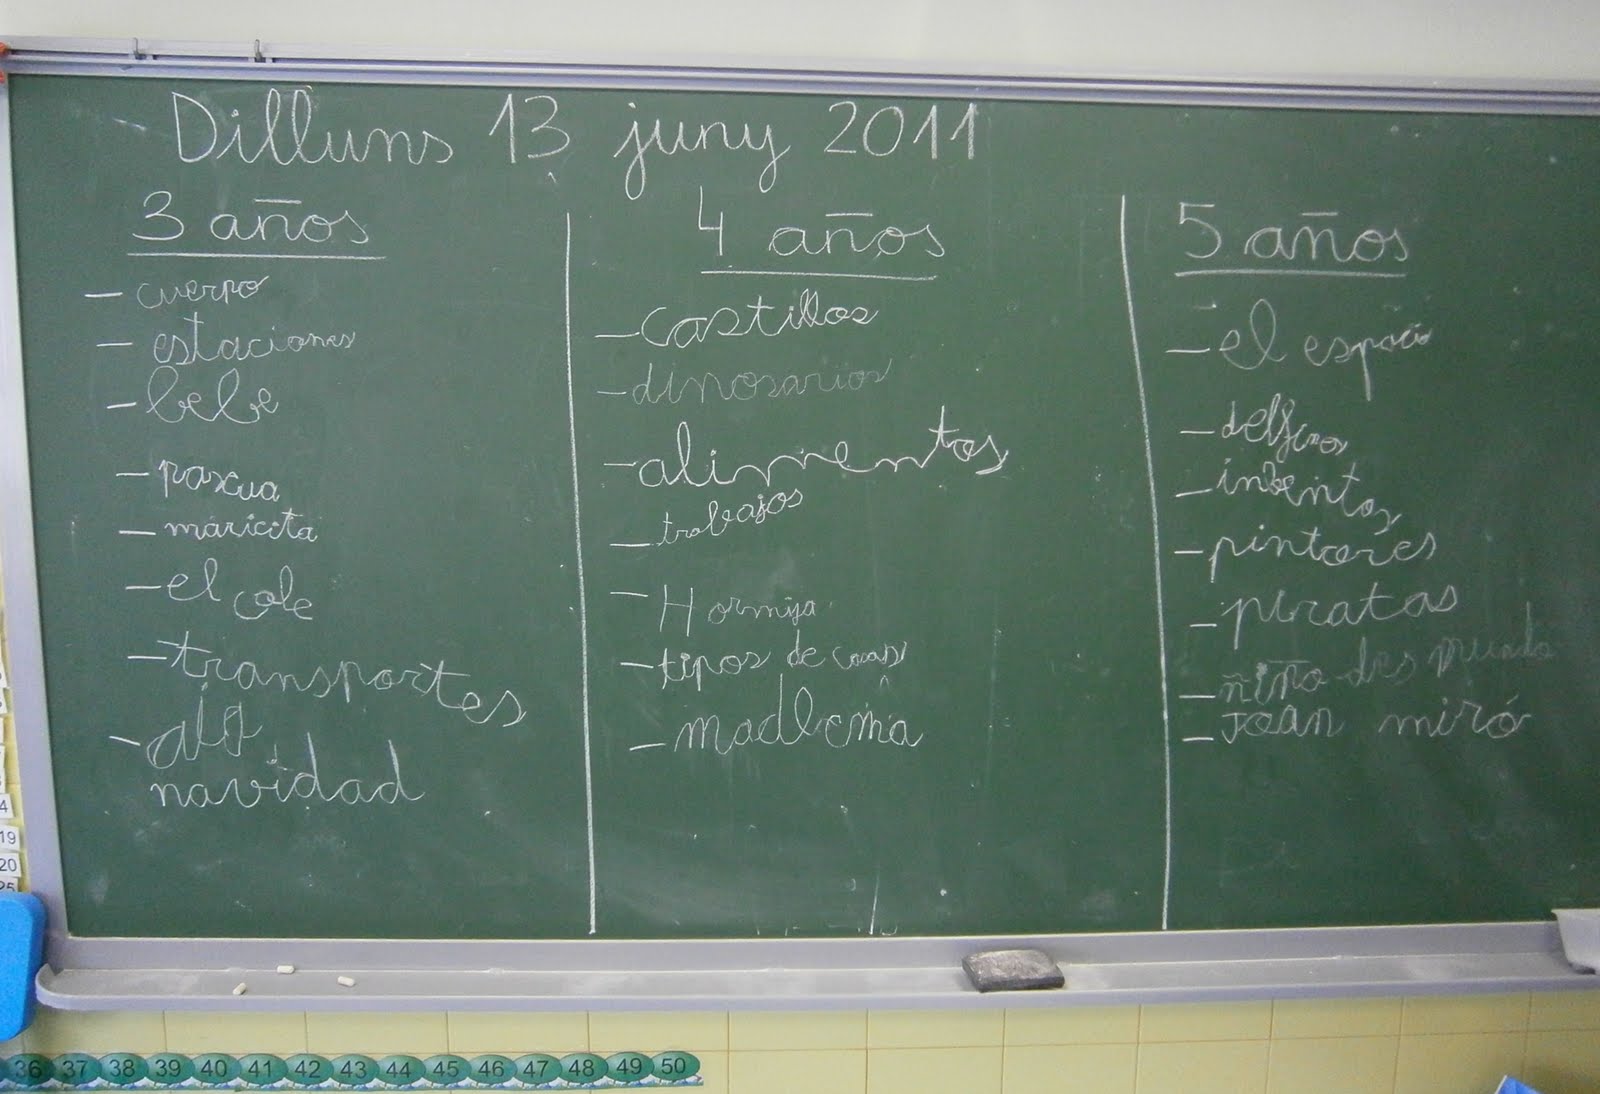 Dilluns 13 juny 2011
3 años
- cuerpo
- estaciones
- bebe
- pascua
- maricita
- el cole
- transportes
-
navidad
4 años
- castillos
- dinosarios
- alimentos
- trabajos
- Hormija
- tipos de casas
-
5 años
- el espacio
- delfines
- inbentos
- pintores
- piratas
- niño des mundo
- Joan miró
4
19
20
25
36 37 38 39 40 41 42 43 44 45 46 47 48 49 50